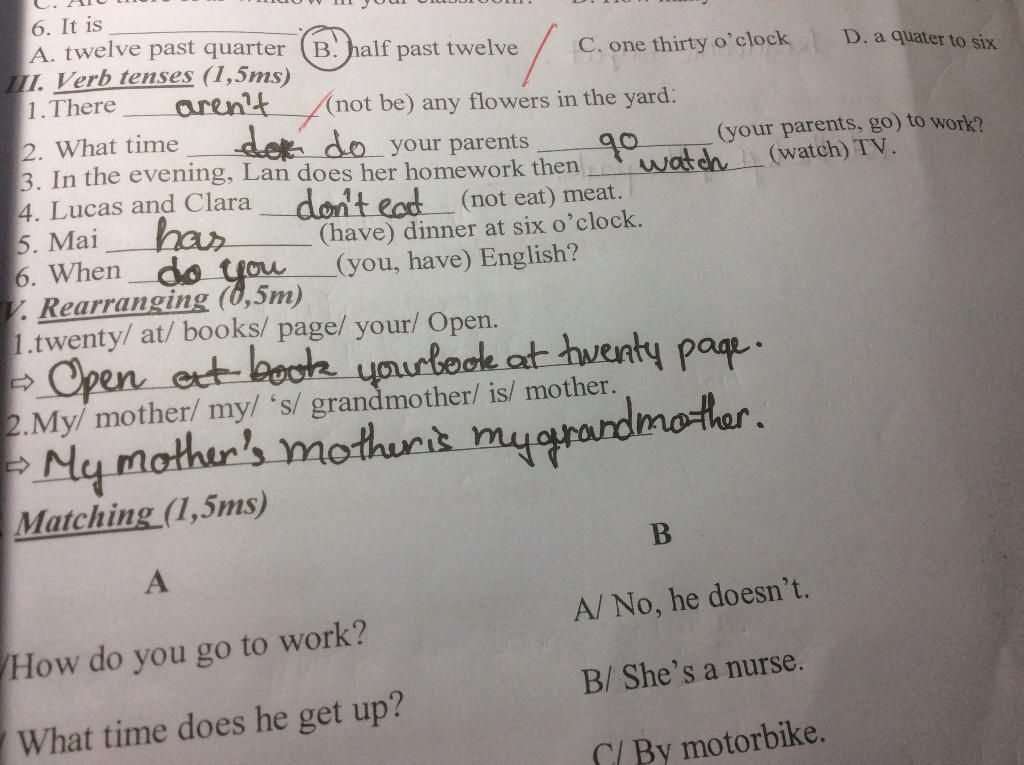 C. Are there
in your classroom?
D. How many
6. It is ____________.
A. twelve past quarter B. half past twelve C. one thirty o'clock D. a quater to six
III. Verb tenses (1,5ms)
1. There aren't (not be) any flowers in the yard.
2. What time do your parents go (your parents, go) to work?
3. In the evening, Lan does her homework then watch (watch) TV.
4. Lucas and Clara don't eat (not eat) meat.
5. Mai has (have) dinner at six o'clock.
6. When do you (you, have) English?
V. Rearranging (0,5m)
1.twenty/ at/ books/ page/ your/ Open.
⇨ Open at book your book at twenty page.
2.My/ mother/ my/ 's/ grandmother/ is/ mother.
⇨ My mother's mother is my grandmother.
Matching (1,5ms)
A B
/How do you go to work? A/ No, he doesn't.
/ What time does he get up? B/ She's a nurse.
C/ By motorbike.